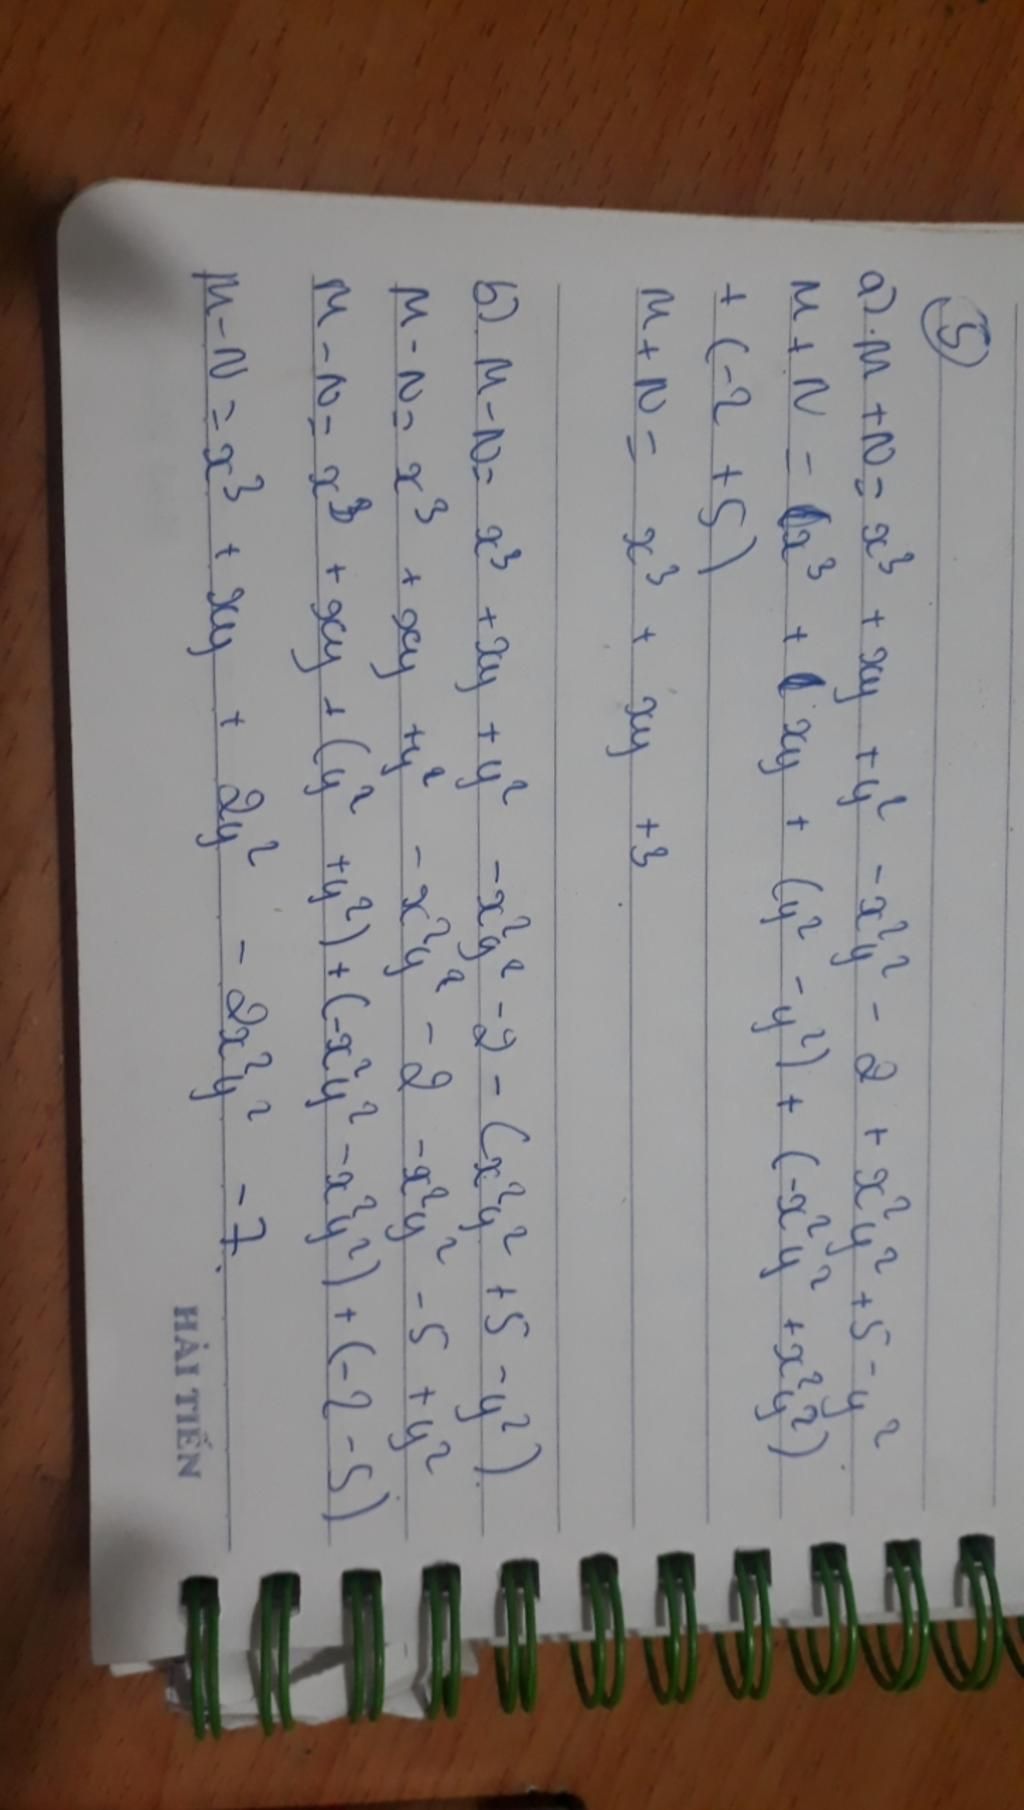 5
a) M + N = x³ + xy + y² - x²y² - 2 + x²y² + 5 - y²
M + N = x³ + xy + (y² - y²) + (-x²y² + x²y²)
+ (-2 + 5)
M + N = x³ + xy + 3
b) M - N = x³ + xy + y² - x²y² - 2 - (x²y² + 5 - y²)
M - N = x³ + xy + y² - x²y² - 2 - x²y² - 5 + y²
M - N = x³ + xy + (y² + y²) + (-x²y² - x²y²) + (-2 - 5)
M - N = x³ + xy + 2y² - 2x²y² - 7.
HẢI TIẾN